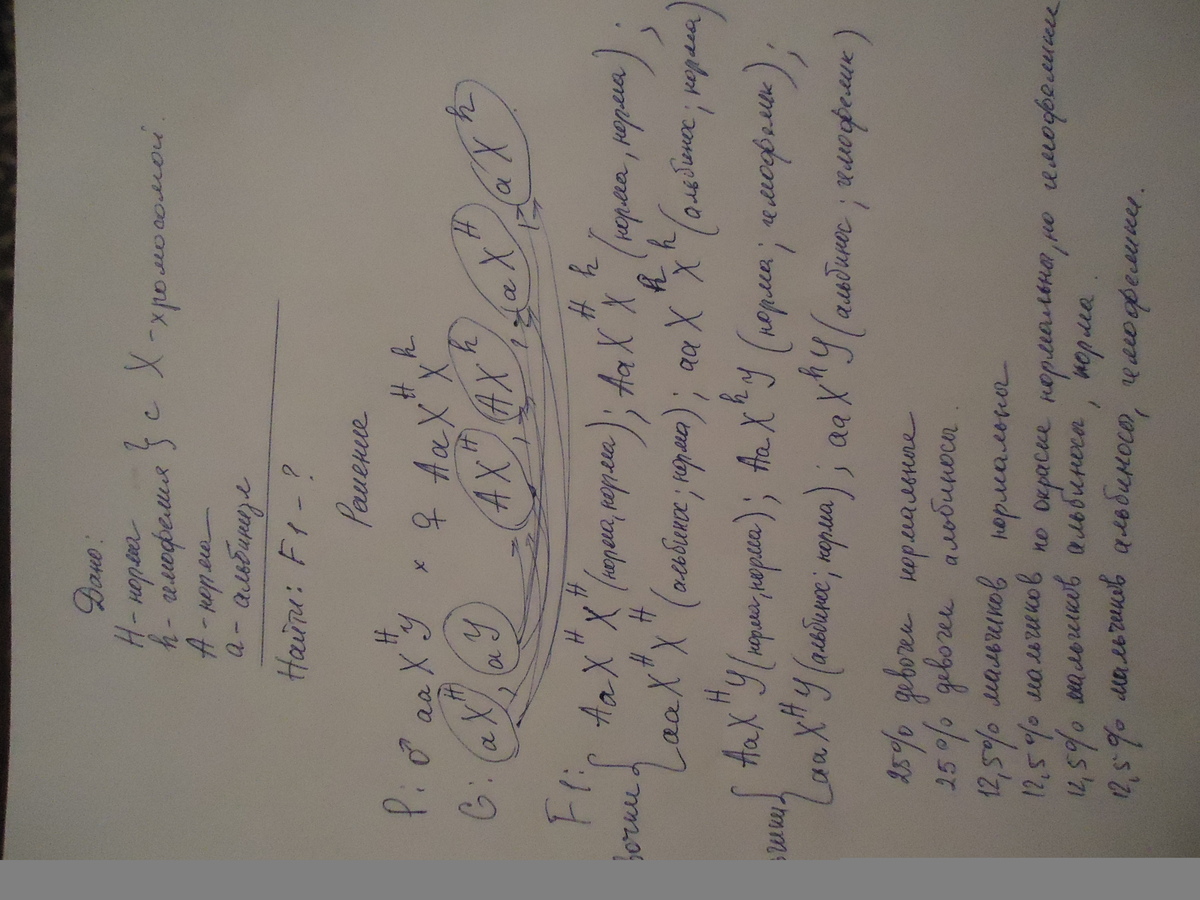 Дано:
H - норма
h - гемофелия } с X - хромосомой.
A - норма
a - альбинизм
Найти: F1 - ?
Решение
P: ♂ aaXᴴY × ♀ AaXᴴXʰ
G: aXᴴ, aY AXᴴ, AXʰ, aXᴴ, aXʰ
F1:
вочки { AaXᴴXᴴ (норма, норма); AaXᴴXʰ (норма, норма);
aaXᴴXᴴ (альбинос; норма); aaXʰXʰ (альбинос; норма)
ьчики { AaXᴴY (норма, норма); AaXʰY (норма; гемофелик);
aaXᴴY (альбинос; норма); aaXʰY (альбинос; гемофелик)
25% девочки нормальные
25% девочки альбиносы.
12,5% мальчиков нормальны
12,5% мальчиков по окраске нормальны, но гемофелики
12,5% мальчиков альбиносы, норма
12,5% мальчиков альбиносы, гемофелики.